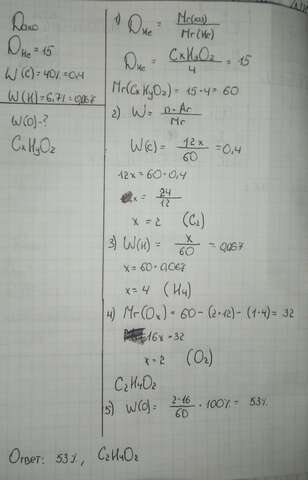 Дано
D He = 15
W(C) = 40% = 0,4
W(H) = 6,7% = 0,067
W(O) - ?
CxHyO2
1) D He = Mr(газ) / Mr(He)
D He = CxHyO2 / 4 = 15
Mr(CxHyO2) = 15·4 = 60
2) W = n·Ar / Mr
W(C) = 12x / 60 = 0,4
12x = 60·0,4
x = 24 / 12
x = 2 (C2)
3) W(H) = x / 60 = 0,067
x = 60·0,067
x = 4 (H4)
4) Mr(Ox) = 60 - (2·12) - (1·4) = 32
16x = 32
x = 2 (O2)
C2H4O2
5) W(O) = 2·16 / 60 · 100% = 53%
Ответ: 53%, C2H4O2